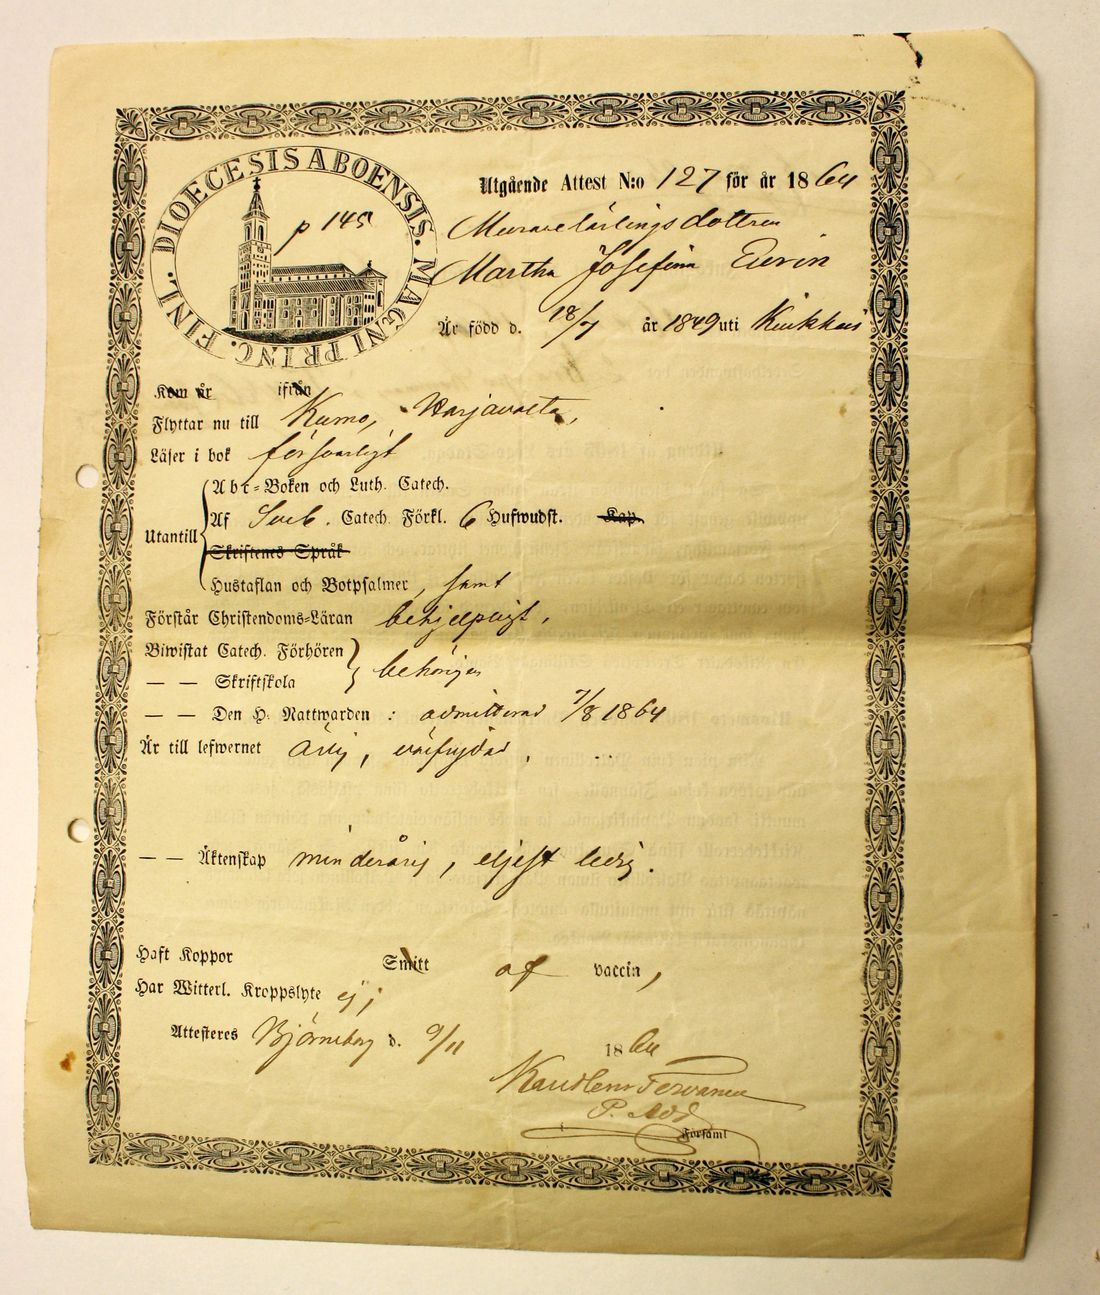 DIOECESIS ABOENSIS. MAGNI PRINC. FINL.
p 145
Utgående Attest N:o 127 för år 1864
Murarelärlingsdottren
Martha Josefina
Är född d. 18/7 år 1849 uti
Kom år ifrån
Flyttar nu till Kumo, Harjavalta,
Läser i bok försvarligt
Abc-Boken och Luth. Catech.
Utantill
Af Sveb. Catech. Förkl. 6 Hufwudst. Kap.
Skriftenes Språk
Hustaflan och Botpsalmer, samt
Förstår Christendoms-Läran behjelpligt,
Biwistat Catech. Förhören
— — Skriftskola
behörigen
— — Den H. Nattwarden : admitterad 7/8 1864
Är till lefwernet ärlig, välfrejdad,
— — Äktenskap minderårig, eljest ledig.
Haft Koppor Smitt af vaccin,
Har Witterl. Kroppslyte ej;
Attesteres Björneborg d. 9/11 1864
P. Adj
Församl